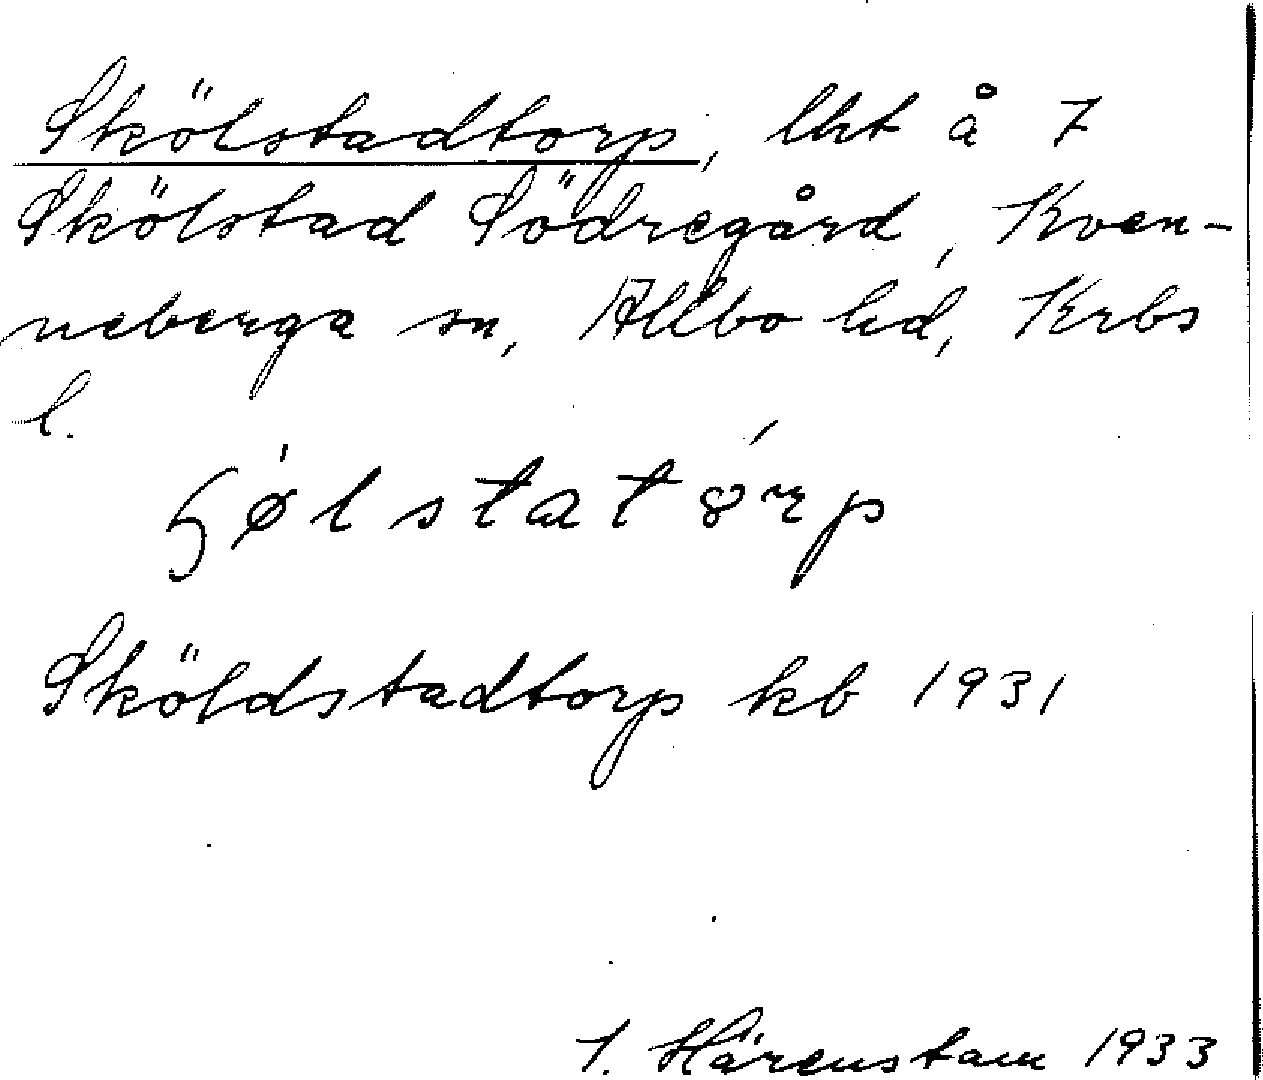 Skölstadtorp, lht å 7
Skölstad Södregård, Kven-
neberga sn, Allbo hd, Krbs
l.
ɧølstatórp
Sköldstadtorp kb 1931
I. Härenstam 1933